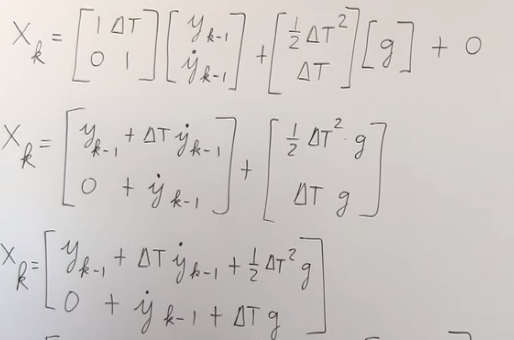 X_k = [1 ΔT; 0 1] [y_{k-1}; ẏ_{k-1}] + [½ΔT²; ΔT] [g] + 0
X_k = [y_{k-1} + ΔT ẏ_{k-1}; 0 + ẏ_{k-1}] + [½ ΔT² · g; ΔT g]
X_k = [y_{k-1} + ΔT ẏ_{k-1} + ½ ΔT² g; 0 + ẏ_{k-1} + ΔT g]